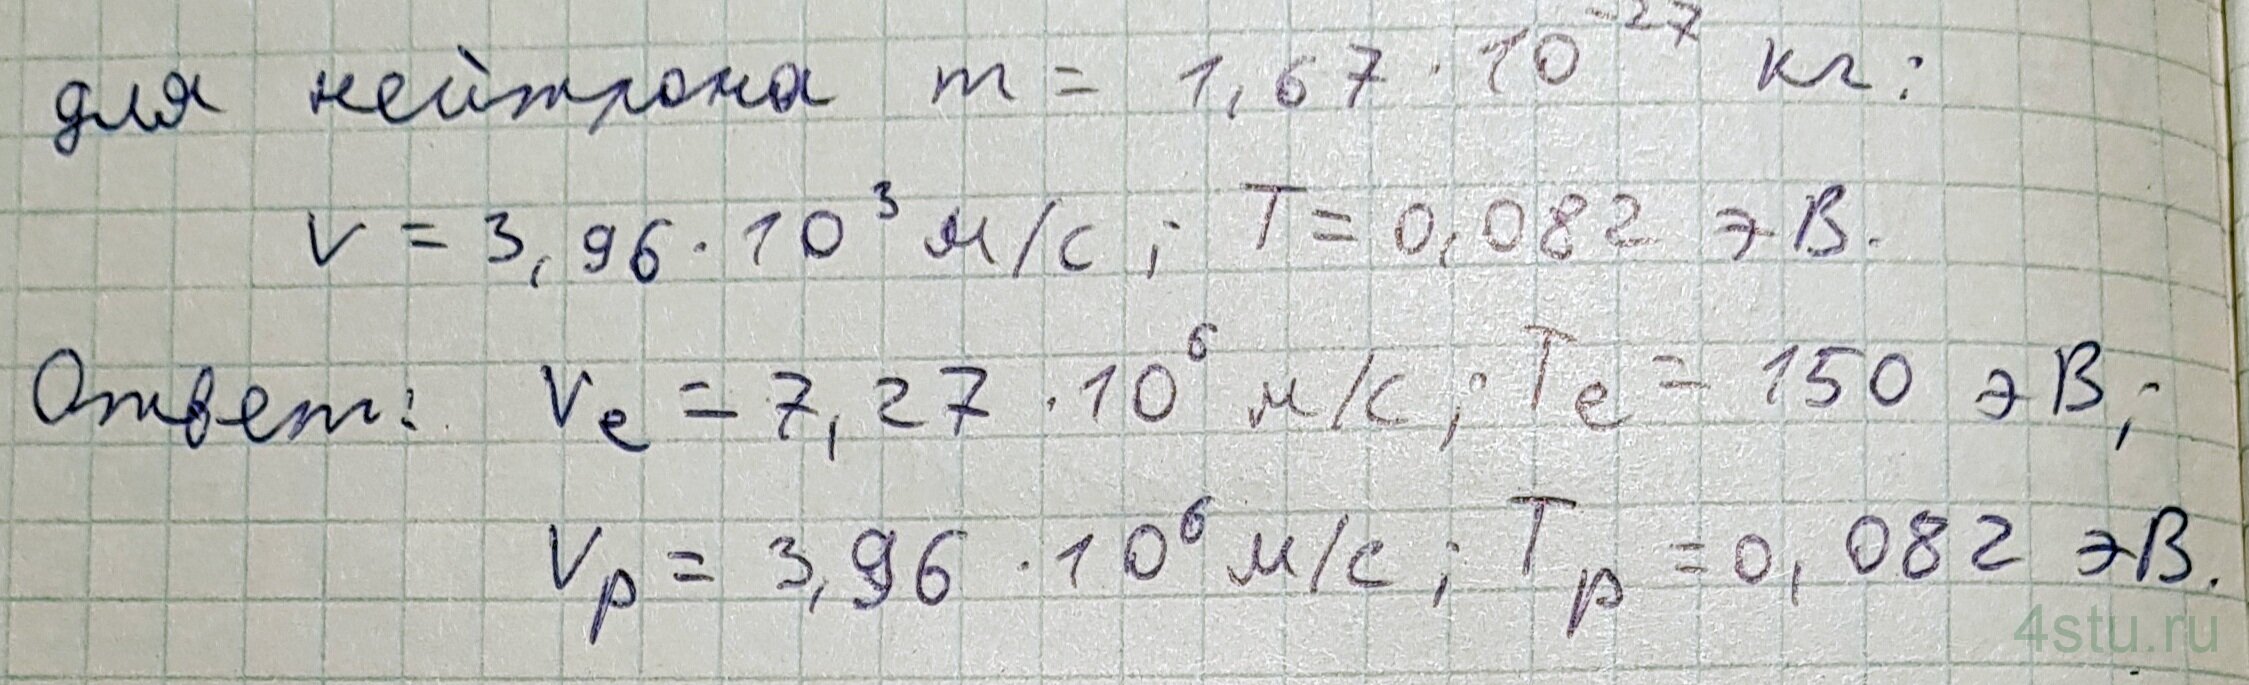 для нейтрона m = 1,67 · 10⁻²⁷ кг:
v = 3,96 · 10³ м/с; T = 0,082 эВ.
Ответ: vₑ = 7,27 · 10⁶ м/с; Tₑ = 150 эВ;
vₚ = 3,96 · 10⁶ м/с; Tₚ = 0,082 эВ.
4stu.ru